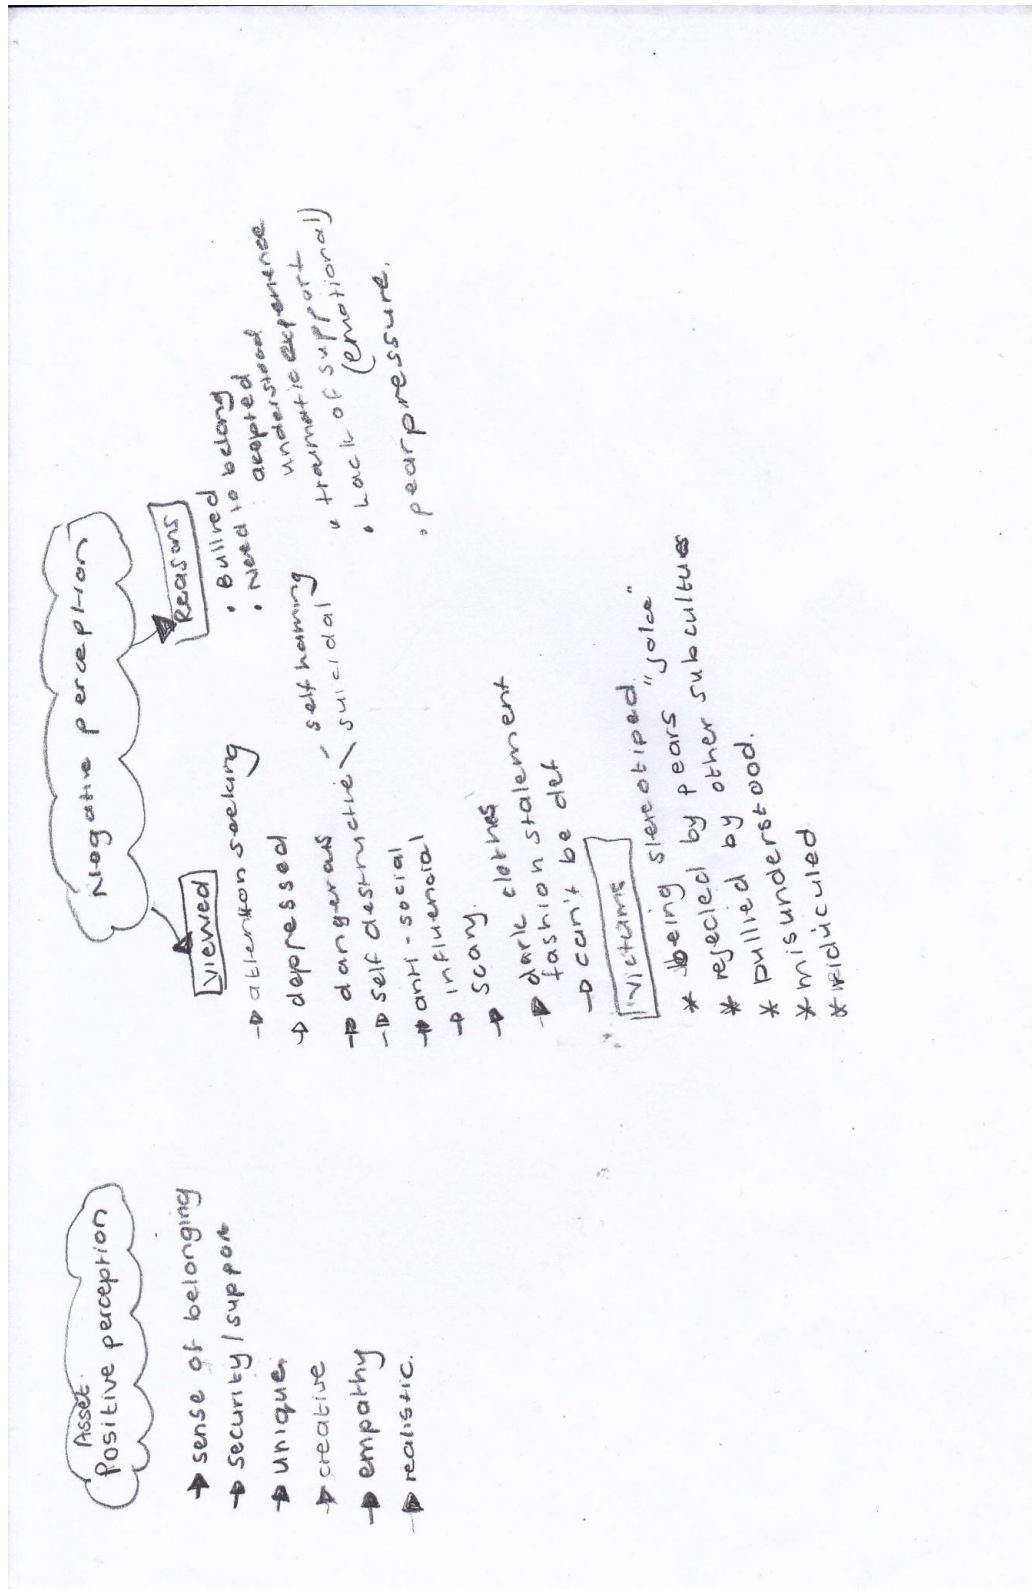 Asset.
Positive perception
sense of belonging
security / support
unique
creative
empathy
realistic.
Negative perception
Viewed
attention seeking
depressed
dangerous
self destructie
self harming
suicidal
anti-social
influencial
scary.
dark clothes
fashion stalement
can't be def
Reasons
Bullied
Need to belong
acepted
understood
traumatic experience
Lack of support
(emotional)
pearpressure.
Victums
* being stereotiped
* rejected by pears "joke"
* bullied by other subcultures
* misunderstood.
* riduculed